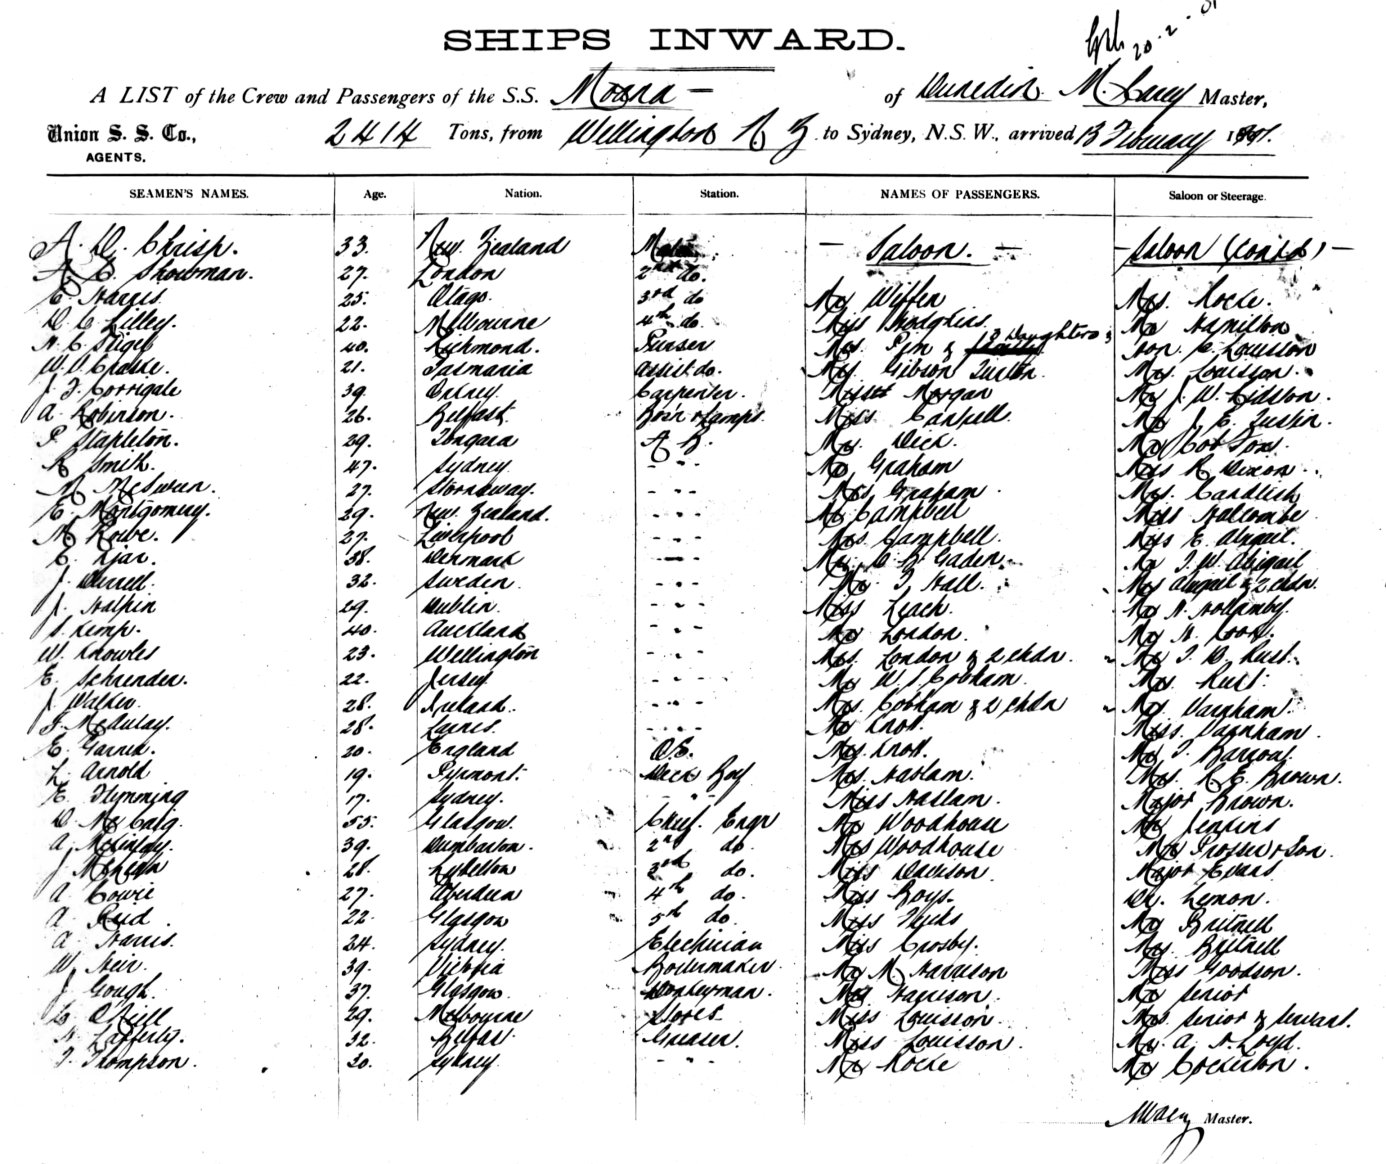 20.2.
SHIPS INWARD.
A LIST of the Crew and Passengers of the S.S. Moana — of Dunedin M. Carey Master,
Union S. S. Co., AGENTS. 2414 Tons, from Wellington N Z to Sydney, N.S.W., arrived 13 February 1
SEAMEN'S NAMES. Age. Nation. Station. NAMES OF PASSENGERS. Saloon or Steerage.
A. D. Chrisp. 33. New Zealand — Saloon. — — Saloon (contd) —
A E. Showman. 27. London 2nd do.
E Harris 25. Otago. 3rd do Mr Wiffen Mrs. Locke.
D C Lilley. 22. Melbourne 4th do. Miss Hodgkins Mr Hamilton
H. C. 40. Richmond. Purser Mrs. Pim & 3 Daughters & son. C. Louisson
W. D. 21. Tasmania assist do. Mr. Gibson Mrs. Louisson.
J. J. Corrigale 39 Orkney Carpenter. Misses Morgan Mr J. W.
A. Robinson. 26. Belfast. Bos'n & Lamps. Miss Mr J. E.
P. Stapleton. 29. A B. Mr. Dick.
R Smith. 47. Sydney. - - - Mr Graham Miss R Dixon.
M McSween. 27. Stornoway. - - - Mrs Graham. Mrs. Candlish
E. Montgomery. 29. New Zealand. - - - Mr Campbell Miss Halcombe
M Rowe. 27. Liverpool - - - Mrs. Campbell. Miss E. Abigail.
C. Kjar. 38. Denmark - - - Mr. C. H. Gaden. Mr J. W. Abigail
J. 32. Sweden. - - - Mr. J. Hall. Mrs Abigail & 2 chdn.
J. Halpin 29. Dublin. - - - Miss Leach. Mr H. Hollamby.
S. Kemp. 40. Auckland - - - Mr London. Mr H. Cook.
W. Knowles 23. Wellington - - - Mrs. London & 2 chdn. Mr J. D. Rust.
E. Schrender. 22. Jersey - - - Mr W. J Cobham. Mrs. Rust.
J. Walker. 28. Ireland. - - - Mrs. Cobham & 2 chdn Mr. Varnham.
J. McAulay. 28. - - - Mr Knott. Miss. Varnham.
E. Garner. 20. England O.S. Mrs. Knott. Mr J.
L. Arnold 19. Pyrmont. Deck Boy Mrs. Haslam. Mrs. R. E. Brown.
E. Flymming 17. Sydney. - - - Miss Haslam. Major Brown.
D. McCaig. 55. Glasgow. Chief. Engr Mr Woodhouse Mr Jenkins
A. McKinlay. 39. Dumbarton. 2nd do. Mrs Woodhouse Mr Prosser & Son.
J. 28. Lyttelton 3rd do. Miss Davison. Major Evans
A Cowie 27. Aberdeen 4th do. Miss Boys. Dr. Lemon.
A Reid 22. Glasgow 5th do. Miss Mr Britnell
A Harris. 24. Sydney. Electrician Miss Crosby. Mrs. Britnell
W. Weir. 39. Victoria Boilermaker. Mr M Harrison Miss Goodson.
J Gough. 37. Glasgow. Donkeyman. Mrs Harrison. Mr Senior
C. O'Neill 29. Melbourne Stores. Miss Louisson. Mrs. Senior & Servant.
H. Lafferty. 32. Belfast. Greaser. Miss Louisson. Mr. A. D. Loyd.
J. Thompson. 30. Sydney - - - Mr Locke Mr Cockerton.
M Carey Master.